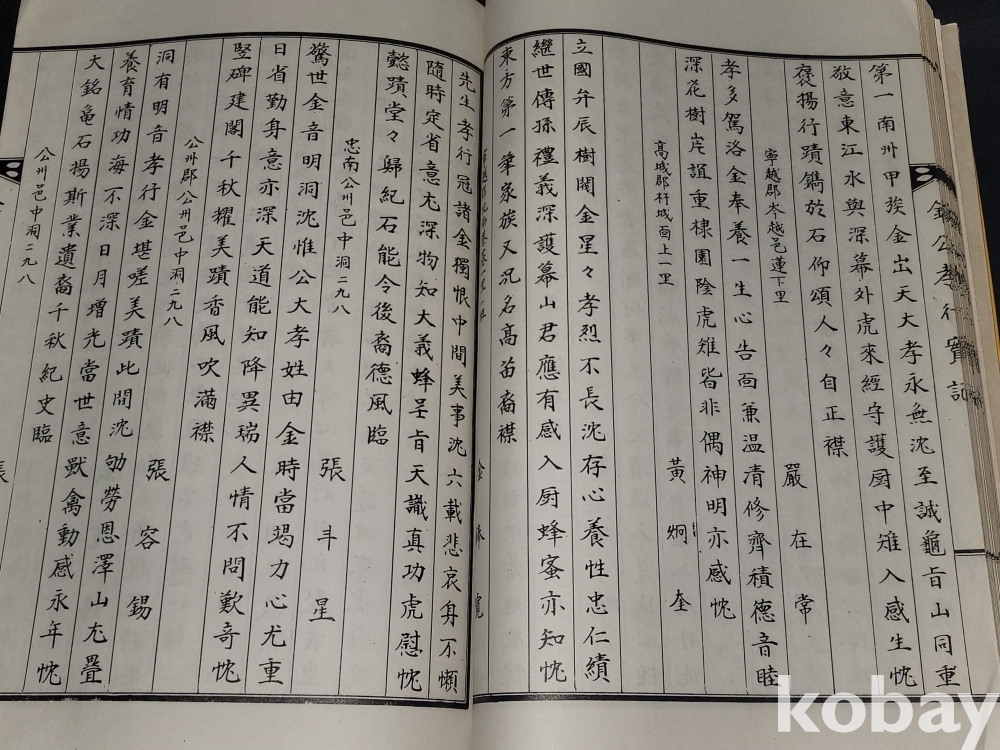 第一南州甲族金出天大孝永無沈至誠龜旨山同重
敬意東江水與深幕外虎來經守護厨中雉入感生忱
褒揚行蹟鐫於石仰頌人々自正襟
寧越郡岑越邑蓮下里 嚴在常
孝多駕洛金奉養一生心告面兼温清修齊積德音睦
深花樹岸誼重棣園陰虎雉皆非偶神明亦感忱
高城郡杆城面上一里 黄炯奎
立國弁辰樹閥金星々孝烈不長沈存心養性忠仁績
繼世傳孫禮義深護幕山君應有感入厨蜂蜜亦知忱
東方第一華家族又況名高苗裔襟
先生孝行冠諸金獨恨中間美事沈六載悲哀身不懶
隨時定省意尤深物知大義蜂呈旨天識真功虎慰忱
懿蹟堂々歸紀石能令後裔德風臨
忠南公州邑中洞二九八 張斗星
驚世金音明洞沈惟公大孝姓由金時當竭力心尤重
日省勤身意亦深天道能知降異瑞人情不問歎奇忱
竪碑建閣千秋耀美蹟香風吹滿襟
公州郡公州邑中洞二九八 張容錫
洞有明音孝行金堪嗟美蹟此間沈劬勞恩澤山尤疊
養育情功海不深日月增光當世意獸禽動感永年忱
大銘亀石揚斯業遺裔千秋紀史臨
公州邑中洞二九八 張
公孝行實記
kobay